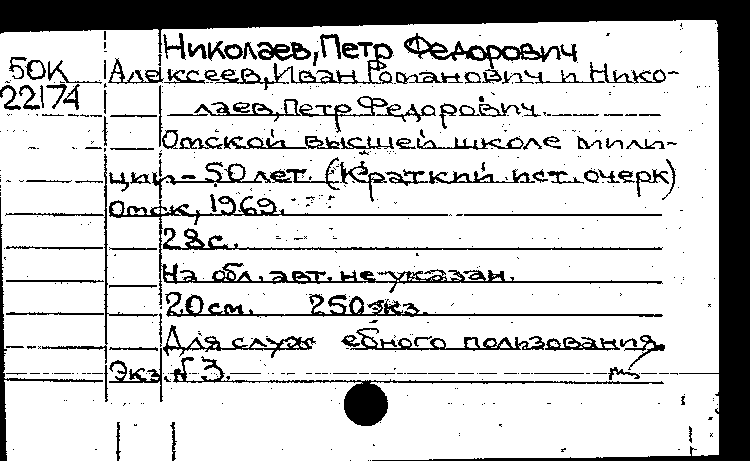 Николаев, Петр Федорович
50К Алексеев, Иван Романович и Нико-
22174 лаев, Петр Федорович.
Омской высшей школе мили-
ции - 50 лет. (Краткий ист. очерк)
Омск, 1969.
28 с.
На обл. авт. не указан.
20 см. 250 экз.
Для служебного пользования.
Экз. № 3.